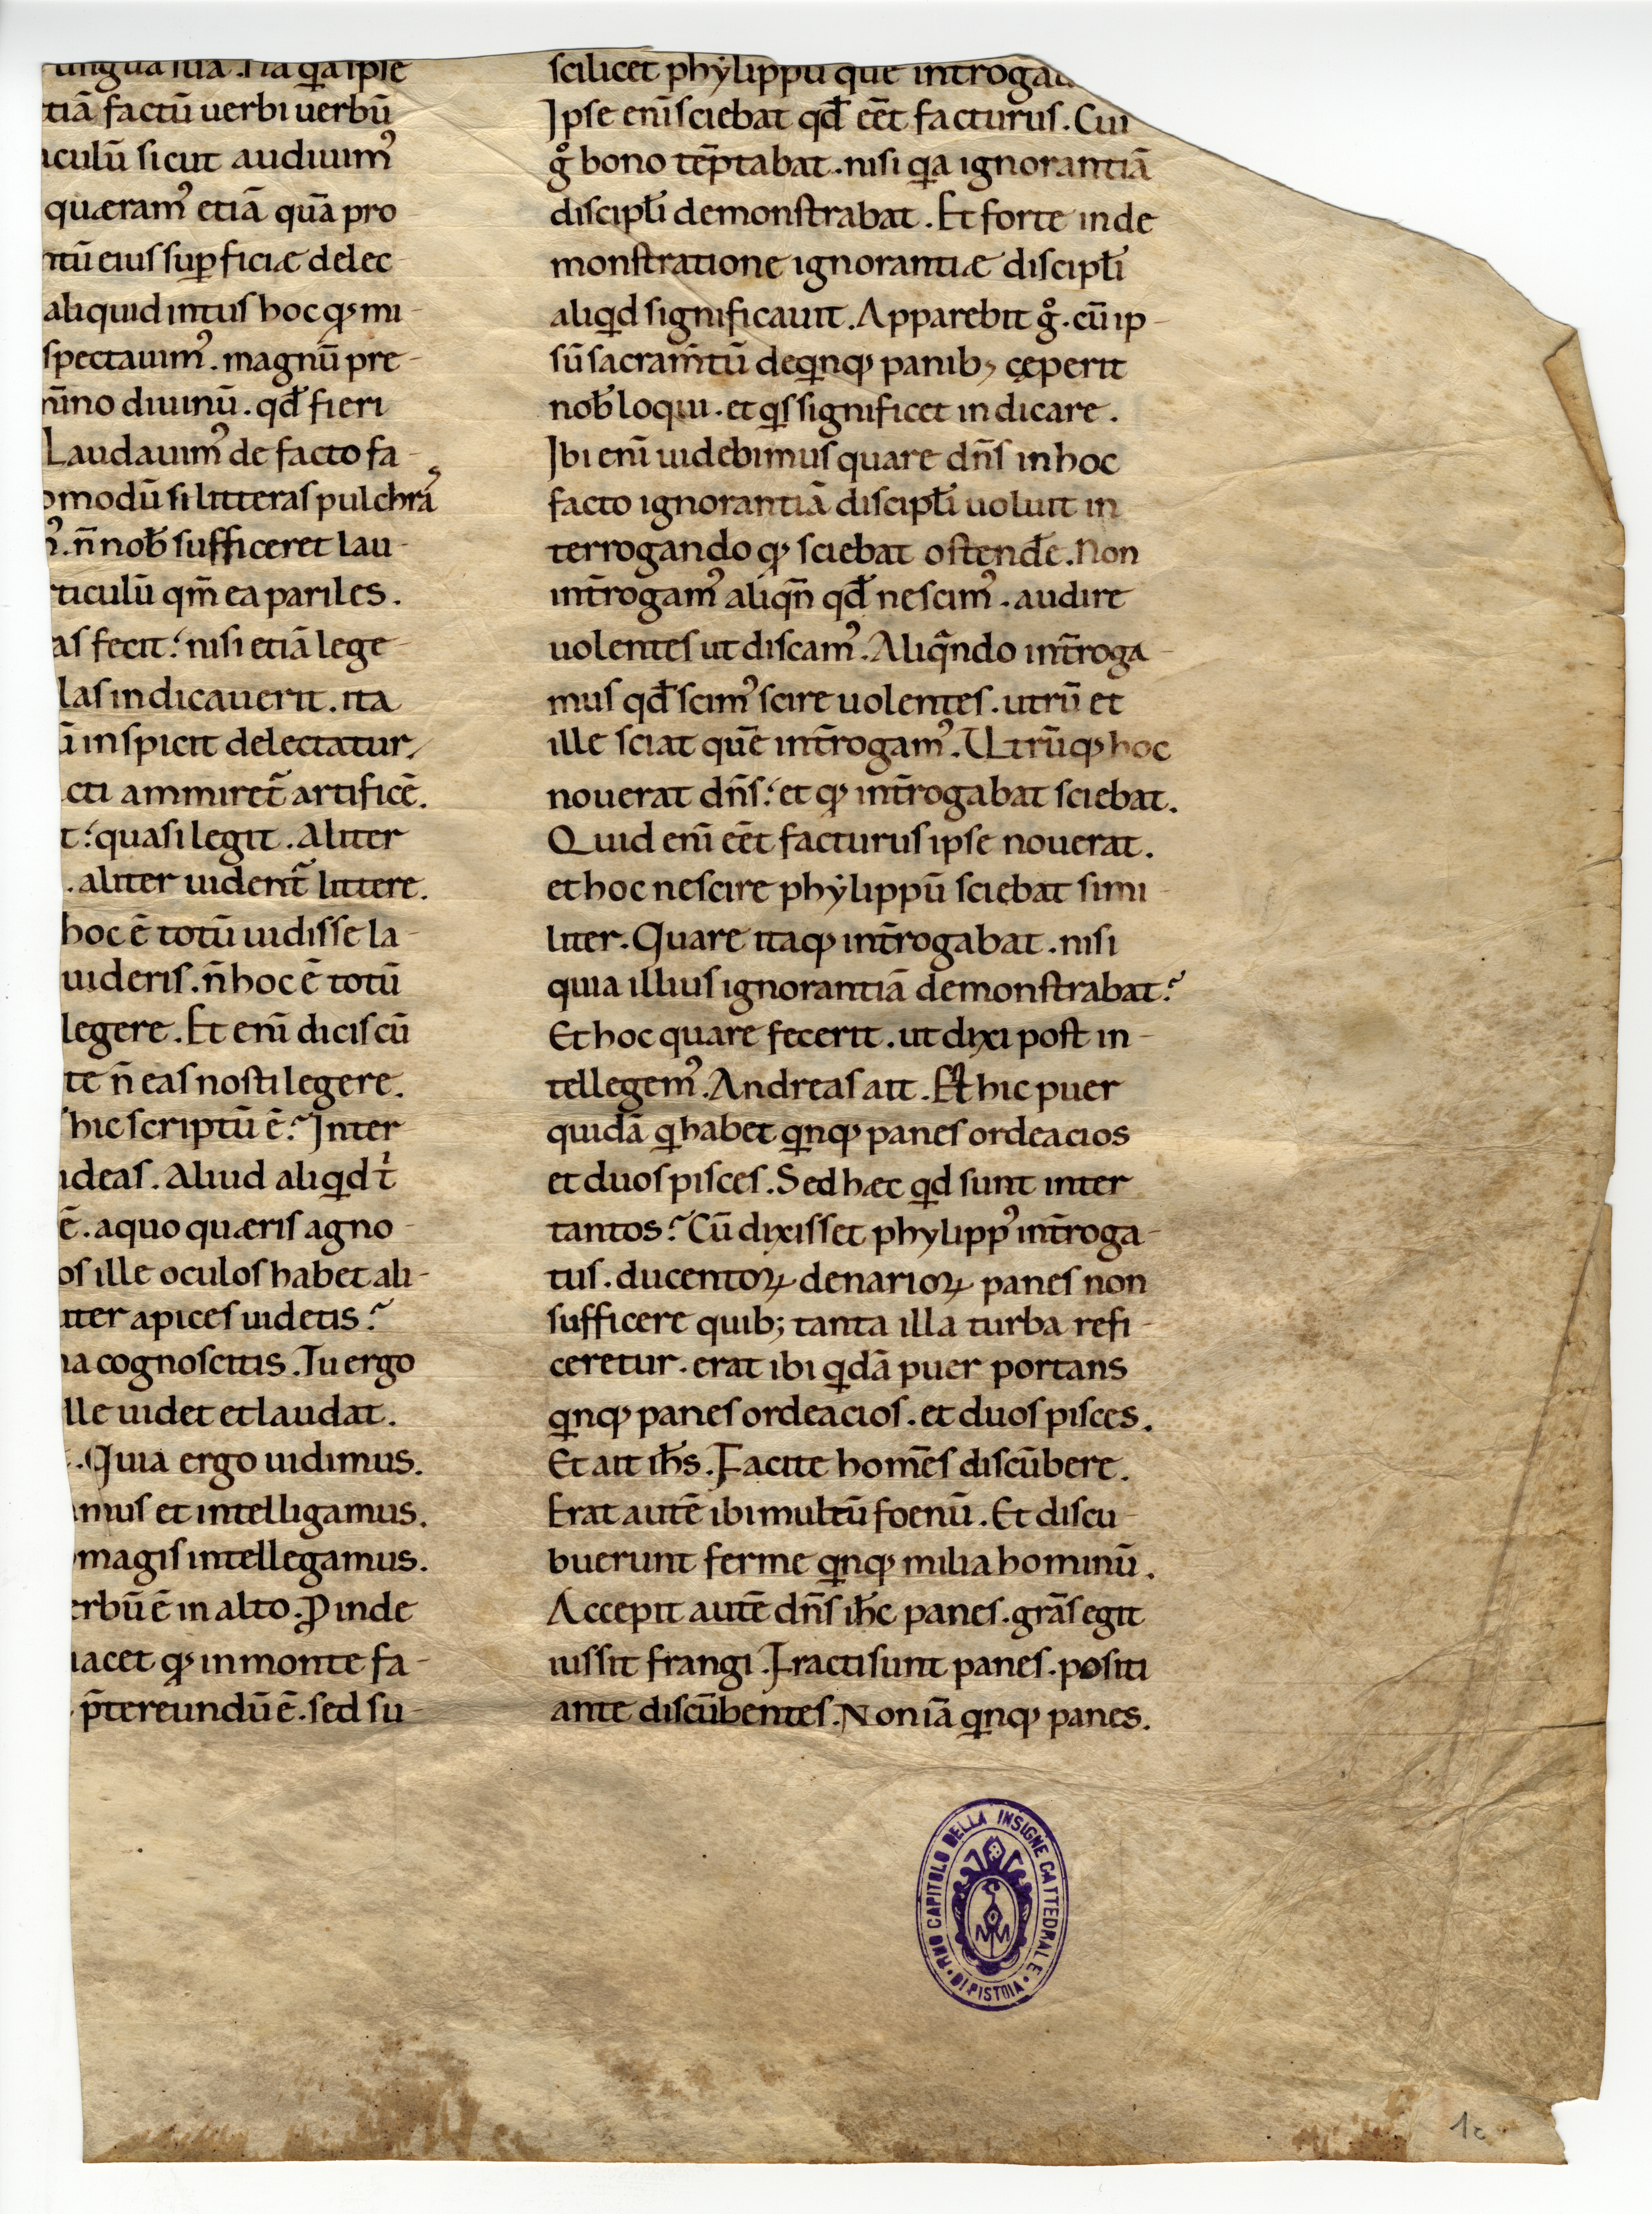 lingua sua. Na q̄a ipse
tiā factū uerbi uerbū
culū sicut audiuimꝰ
quæramꝰ etiā quā pro
ntū eius suꝑficiæ delec-
aliquid intus hoc qꝫ mi-
spectauimꝰ. magnū pre-
nīno diuinū. qđ fieri
Laudauimꝰ de facto fa-
omodū si litteras pulchrā
ꝰ. n̄ nob̄ sufficeret lau-
rticulū qm̄ ea pariles.
as fecit: nisi etiā lege-
las indicauerit. ita
ū inspicit delectatur,
cti ammiret̄ artificē.
t: quasi legit. Aliter
. aliter uident̄ littere.
hoc ē totū uidisse la-
uideris. n̄ hoc ē totū
legere. Et enī dicis cū
te n̄ eas nosti legere.
hic scriptū ē? Inter-
ideas. Aliud aliq̇d t̄
ē. a quo quæris agno-
os ille oculos habet ali-
iter apices uidetis?
na cognoscitis. Tu ergo
lle uidet et laudat.
. Quia ergo uidimus.
amus et intelligamus.
magis intellegamus.
erbū ē in alto. Ꝓinde
iacet qꝫ in monte fa-
p̄tereundū ē. sed su-
scilicet phẏlippū que int̄rogau
Ipse enī sciebat qđ eēt facturus. Cui
g̊ bono tēptabat. nisi qa ignorantiā
discipłi demonstrabat. Et forte in de
monstratione ignorantiæ discipłi
aliqd significauit. Apparebit g̊. cū ip-
sū sacram̄tū de qnqꝫ panibꝫ cęperit
nob̄ loqui. et qs significet indicare.
Ibi enī uidebimus quare dn̄s in hoc
facto ignorantiā discipłi uoluit in
terrogando qꝫ sciebat ostendē. Non
int̄rogamꝰ aliqn̄ qđ nescimꝰ. audire
uolentes ut discamꝰ. Aliqndo int̄roga-
mus qđ scimꝰ scire uolentes. utrū et
ille sciat quē int̄rogamꝰ. Utrūqꝫ hoc
nouerat dn̄s: et qꝫ int̄rogabat sciebat.
Quid enī eēt facturus ipse nouerat.
et hoc nescire phẏlippū sciebat simi-
liter. Quare itaqꝫ int̄rogabat. nisi
quia illius ignorantiā demonstrabat?
Et hoc quare fecerit. ut dixi post in-
tellegemꝰ. Andreas ait. Est hic puer
quidā q habet qnqꝫ panes ordeacios
et duos pisces. Sed hæc qd sunt inter
tantos? Cū dixisset phylippꝰ int̄roga-
tus. ducentoꝝ denarioꝝ panes non
sufficere quib; tanta illa turba refi-
ceretur. erat ibi qdā puer portans
qnqꝫ panes ordeacios. et duos pisces.
Et ait ih̄s. Facite homēs discūbere.
Erat autē ibi multū foenū. Et discu-
buerunt ferme qnqꝫ milia hominū.
Accepit autē dn̄s ih̄c panes. grās egit
iussit frangi. Fracti sunt panes. positi
ante discūbentes. Non iā qnqꝫ panes.
CAPITOLO DELLA INSIGNE CATTEDRALE
DI PISTOIA